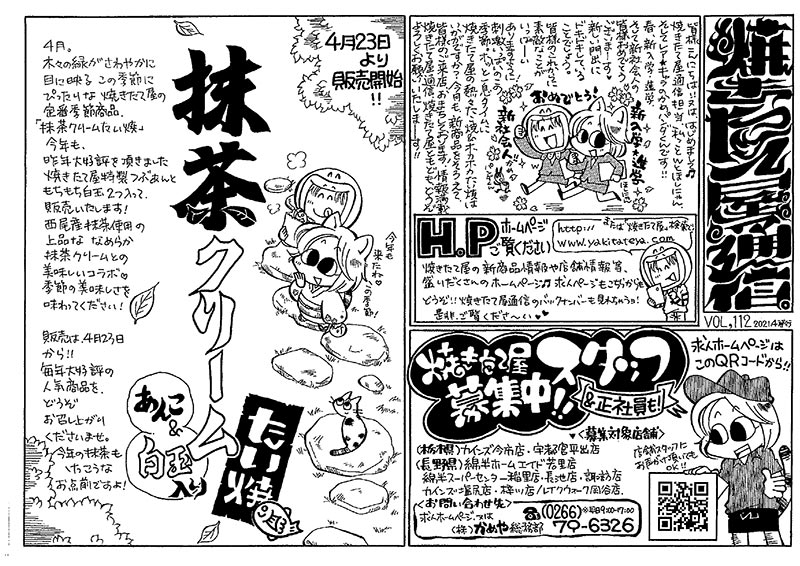 焼きたて屋通信。
VOL.,112 2021.4月発行
皆様こんにちは!!又は、はじめまして♪
焼きたて屋通信担当、私ことゆとほしにゃん、
そしてレアキャラのかめパンダくんです!!
春、新入学・進学、
そして新社会人の
皆様おめでとう
ございまーす。
新しい門出に
ドキドキしている
ことでしょう。
皆様のこれからに
素敵なことが
いっぱーい
ありますように。
おめでとう!
新入学・進学
新社会人の
H.P
ホームページ
ご覧ください
http://
または「焼きたて屋」検索で
www.yakitateya.com
焼きたて屋の新商品情報や店舗情報等、
盛りだくさんのホームページ♪求人ページもこちらから
どうぞ!!焼きたて屋通信のバックナンバーも見れちゃうョ!
是非、ご覧くださ～い♥
焼きたて屋スタッフ
募集中!!
&正社員も!
求人ホームページは
このQRコードから!!
<募集対象店舗>
(栃木県)カインズ今市店・宇都宮平出店
(長野県)綿半ホームエイド若里店
綿半スーパーセンター稲里店・長池店・諏訪店
カインズ塩尻店・梓川店/レイクウォーク岡谷店
店舗スタッフに
お声がけ頂いても
OK!!
<お問い合わせ先>
求人ホームページ又は
☎(0266)※平日9:00-17:00
(株)かめや総務部 70-6326
4月23日
より
販売開始
!!
抹茶クリーム
たい焼
あんこ
&
白玉
入り
今年も
来たネ♡
この季節!
4月。
木々の緑がさわやかに
目に映るこの季節に
ぴったりな焼きたて屋の
定番季節商品、
「抹茶クリームたい焼」
今年も、
昨年大好評を頂きました
焼きたて屋特製つぶあんと
もちもち白玉2つ入って、
販売いたします!
西尾産抹茶使用の
上品ななめらか
抹茶クリームとの
美味しいコラボ♡
季節の美味しさを
味わってください!
販売は、4月23日
から!!
毎年大好評の
人気商品を、
どうぞ
お召し上がり
くださいませ。
今年の抹茶も
いたこうな
お点前ですよ!